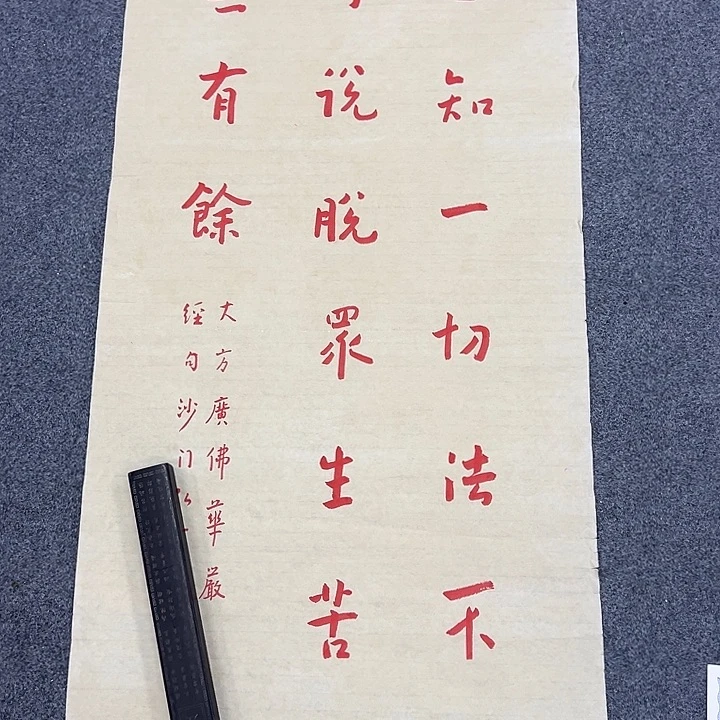 知一切法不
說脫眾生苦
有餘
大方廣佛華嚴
經句沙门